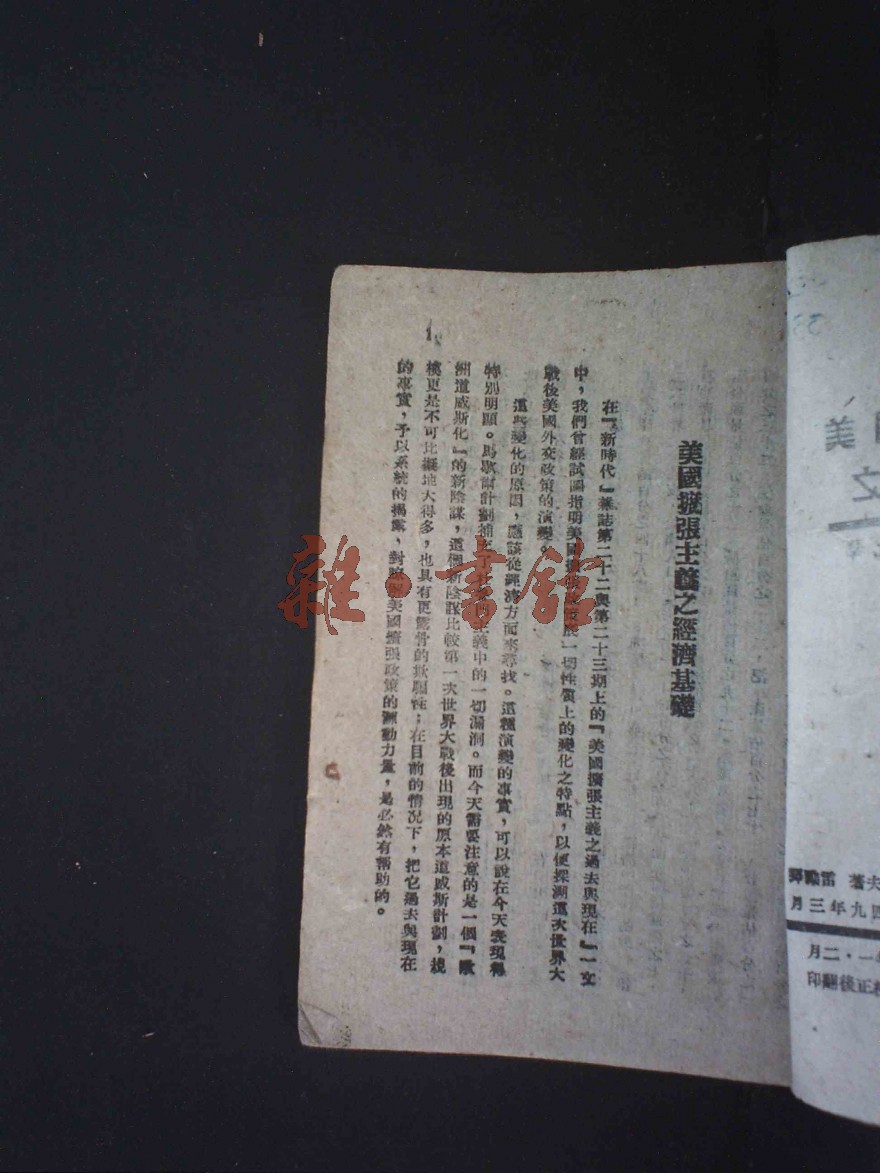 美國擴張主義之經濟基礎
在『新時代』雜誌第二十二與第二十三期上的『美國擴張主義之過去與現在』一文
中，我們曾經試圖指明美國擴張一切性質上的變化之特點，以便探溯這次世界大
戰後美國外交政策的演變。
這些變化的原因，應該從經濟方面來尋找。這種演變的事實，可以說在今天表現得
特別明顯。馬歇爾計劃補主義中的一切漏洞。而今天需要注意的是一個『歐
洲道威斯化』的新陰謀，這個新陰謀比較第一次世界大戰後出現的原本道威斯計劃，規
模更是不可比擬地大得多，也具有更露骨的欺騙性；在目前的情況下，把它過去與現在
的事實，予以系統的揭露，對美國擴張政策的動力量，是必然有幫助的。
雜·書館
美
文
夫著
九年三月
一·二月
正後翻印